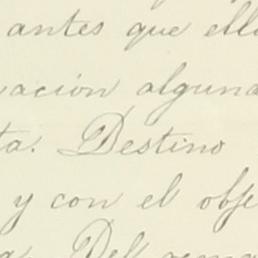 antes que ell
uación alguna
ta. Destino
y con el obje
a. Del